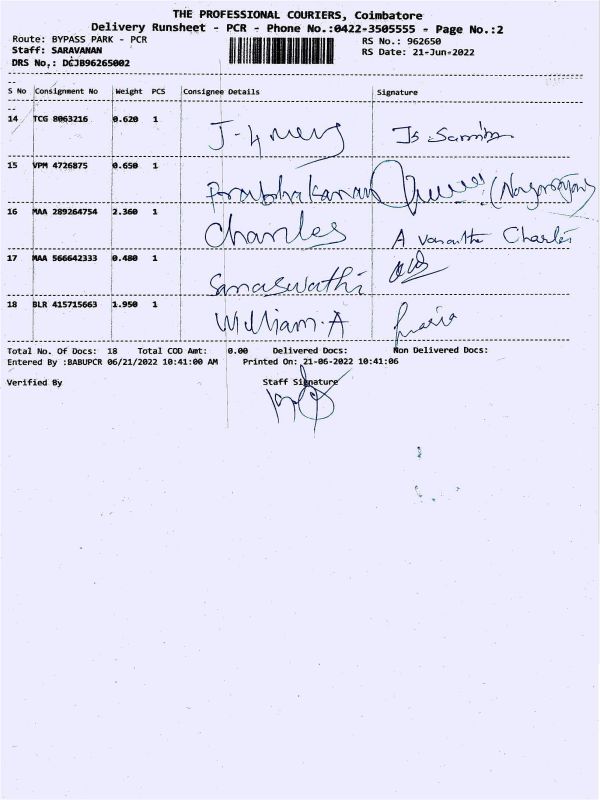 THE PROFESSIONAL COURIERS, Coimbatore
Delivery Runsheet - PCR - Phone No.:0422-3505555 - Page No.:2
Route: BYPASS PARK - PCR
RS No.: 962650
Staff: SARAVANAN
RS Date: 21-Jun-2022
DRS No.: DCJB96265002
S No Consignment No Weight PCS Consignee Details Signature
14 TCG 8063216 0.620 1
15 VPM 4726875 0.650 1 Prabhakaran
16 MAA 289264754 2.360 1 Charles A Vasantha Charles
17 MAA 566642333 0.480 1 Saraswathi
18 BLR 415715663 1.950 1 William.A
Total No. Of Docs: 18 Total COD Amt: 0.00 Delivered Docs: Non Delivered Docs:
Entered By :BABUPCR 06/21/2022 10:41:00 AM Printed On: 21-06-2022 10:41:06
Verified By Staff Signature